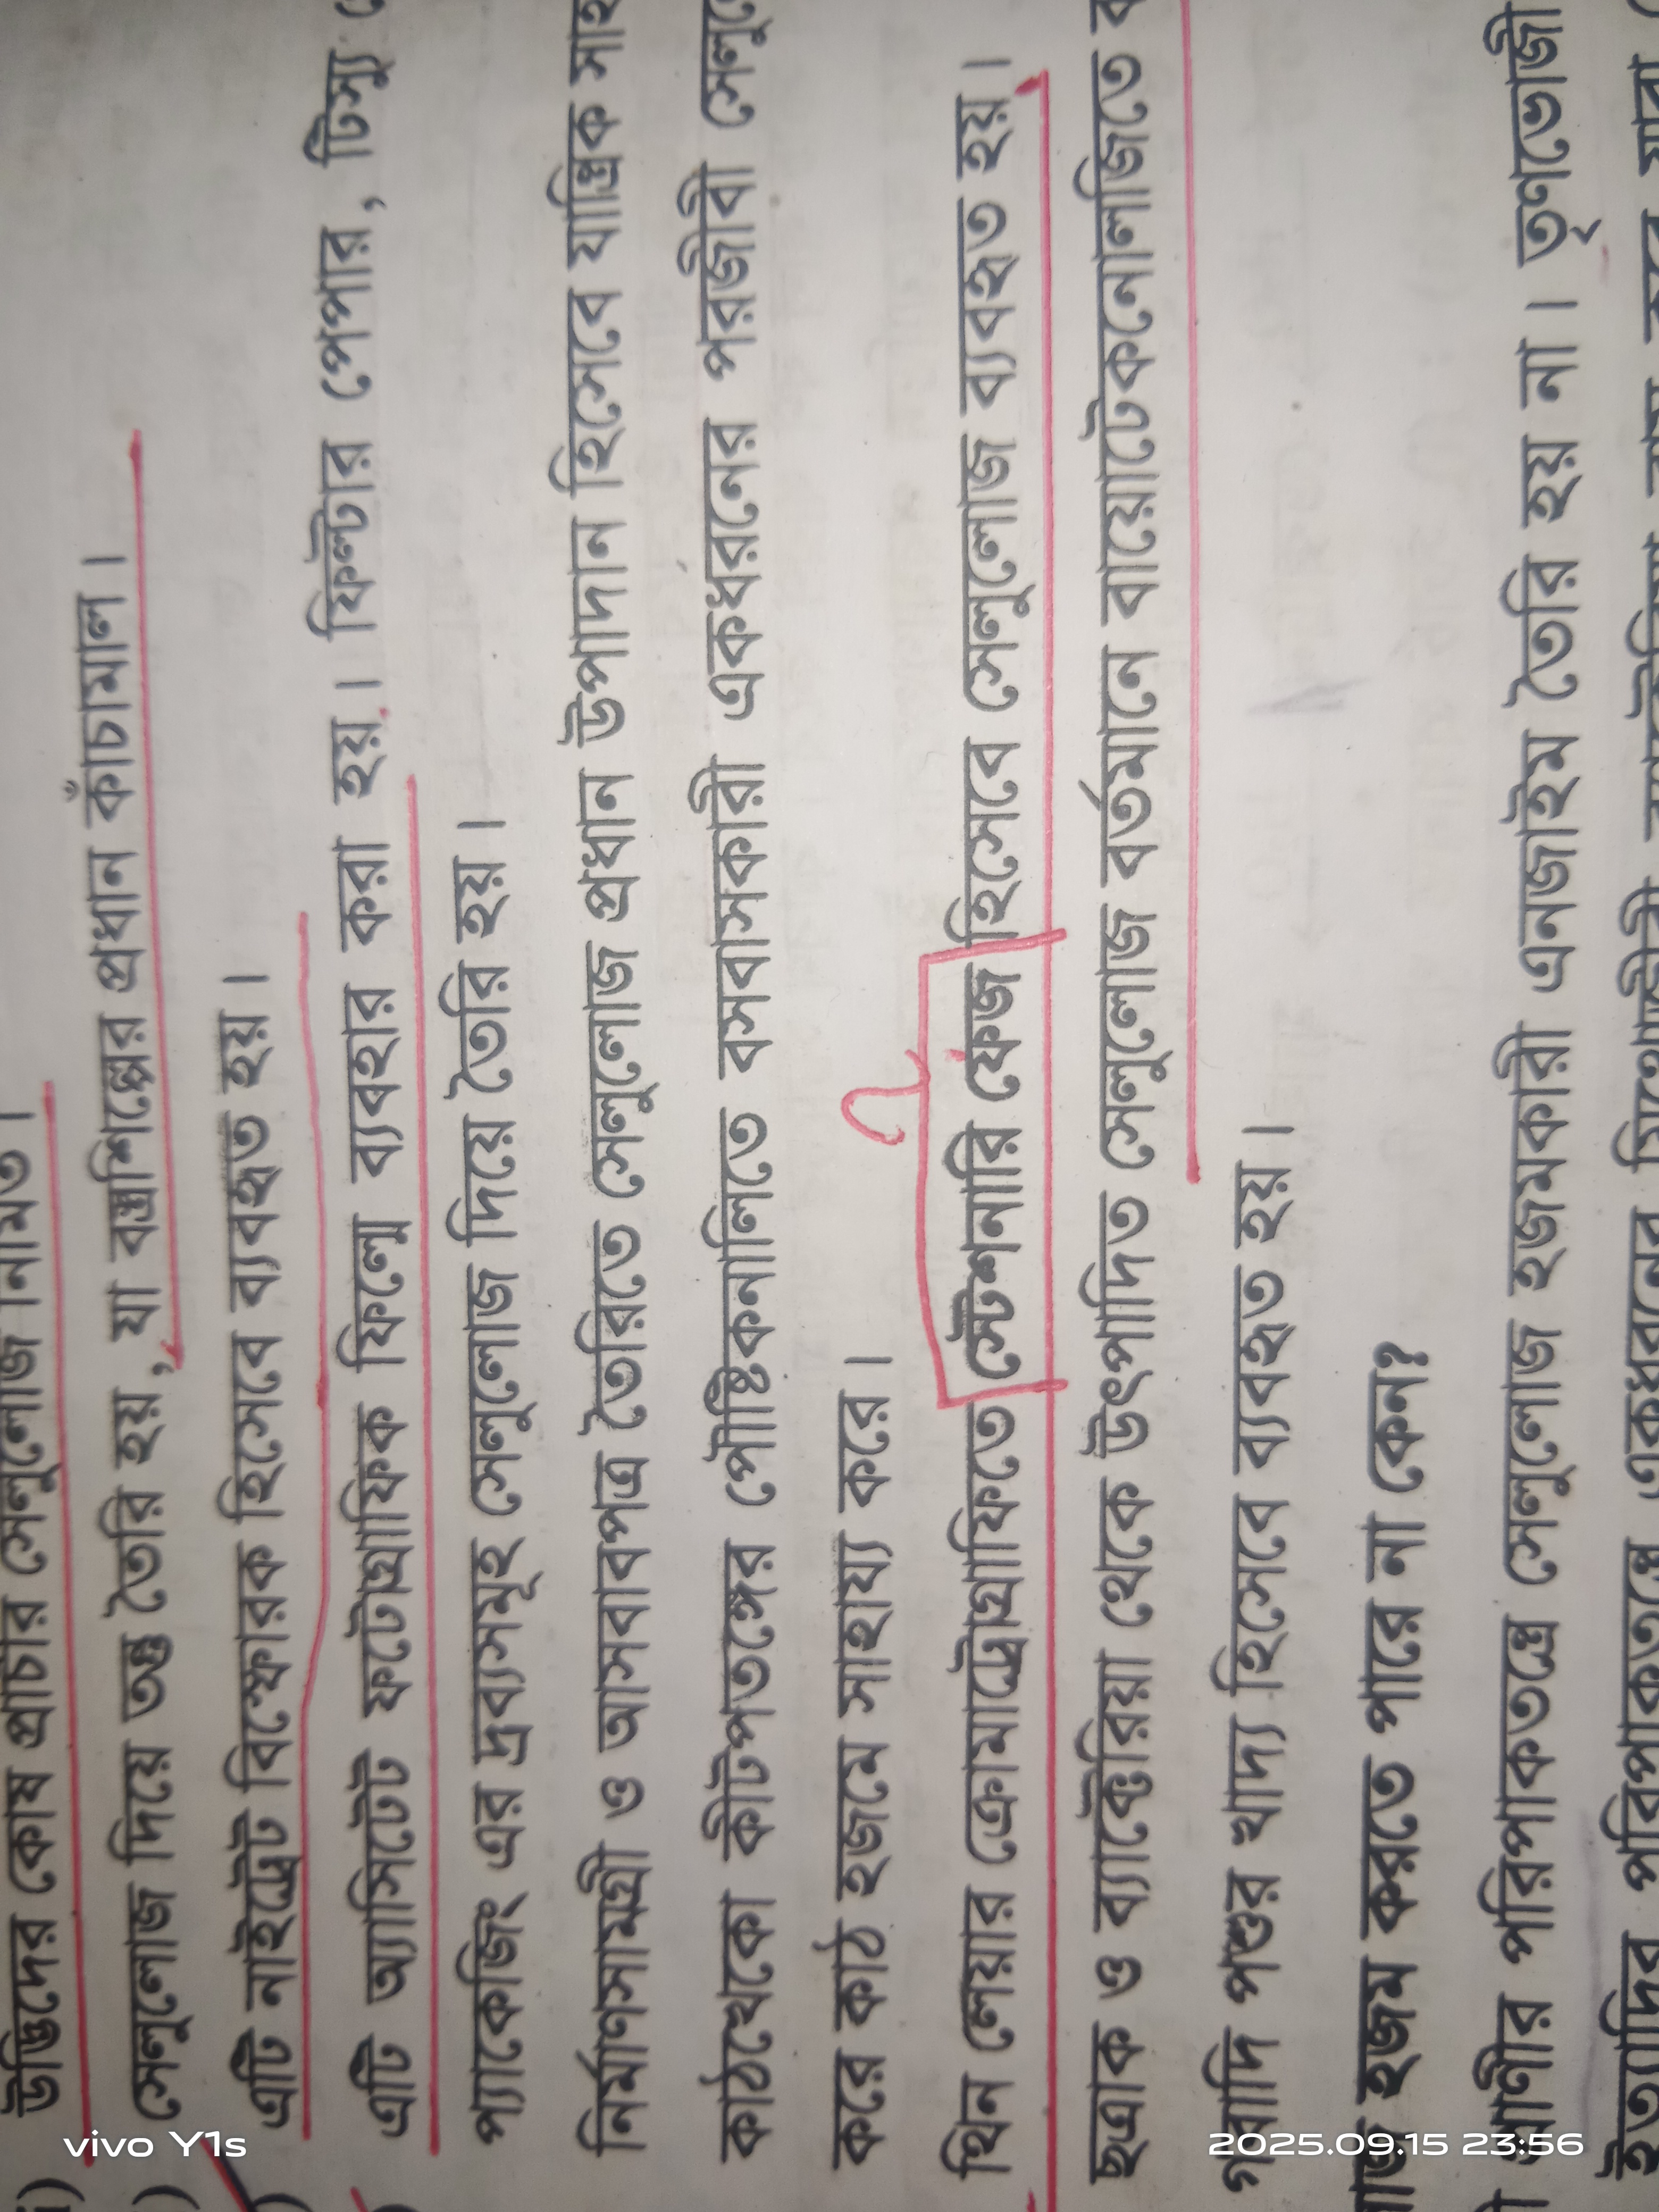 উদ্ভিদের কোষ প্রাচীর সেলুলোজ নির্মিত।
সেলুলোজ দিয়ে তন্তু তৈরি হয়, যা বস্ত্রশিল্পের প্রধান কাঁচামাল।
এটি নাইট্রেট বিস্ফোরক হিসেবে ব্যবহৃত হয়।
এটি অ্যাসিটেট ফটোগ্রাফিক ফিল্মে ব্যবহার করা হয়। ফিল্টার পেপার, টিস্যু
প্যাকেজিং এর দ্রব্যসমূহ সেলুলোজ দিয়ে তৈরি হয়।
নির্মাণসামগ্রী ও আসবাবপত্র তৈরিতে সেলুলোজ প্রধান উপাদান হিসেবে যান্ত্রিক
কাঠখেকো কীটপতঙ্গের পৌষ্টিকনালিতে বসবাসকারী একধরনের পরজীবী
করে কাঠ হজমে সাহায্য করে।
থিন লেয়ার ক্রোমাটোগ্রাফিতে স্টেশনারি ফেজ হিসেবে সেলুলোজ ব্যবহৃত হয়।
ছত্রাক ও ব্যাকটেরিয়া থেকে উৎপাদিত সেলুলোজ বর্তমানে বায়োটেকনোলজিতে
গবাদি পশুর খাদ্য হিসেবে ব্যবহৃত হয়।
হজম করতে পারে না কেন?
পরিপাকতন্ত্রে সেলুলোজ হজমকারী এনজাইম তৈরি হয় না। তৃণভোজী
ইত্যাদির পরিপাকতন্ত্রে একধরনের মিথোজীবী
vivo Y1s
2025.09.15 23:56